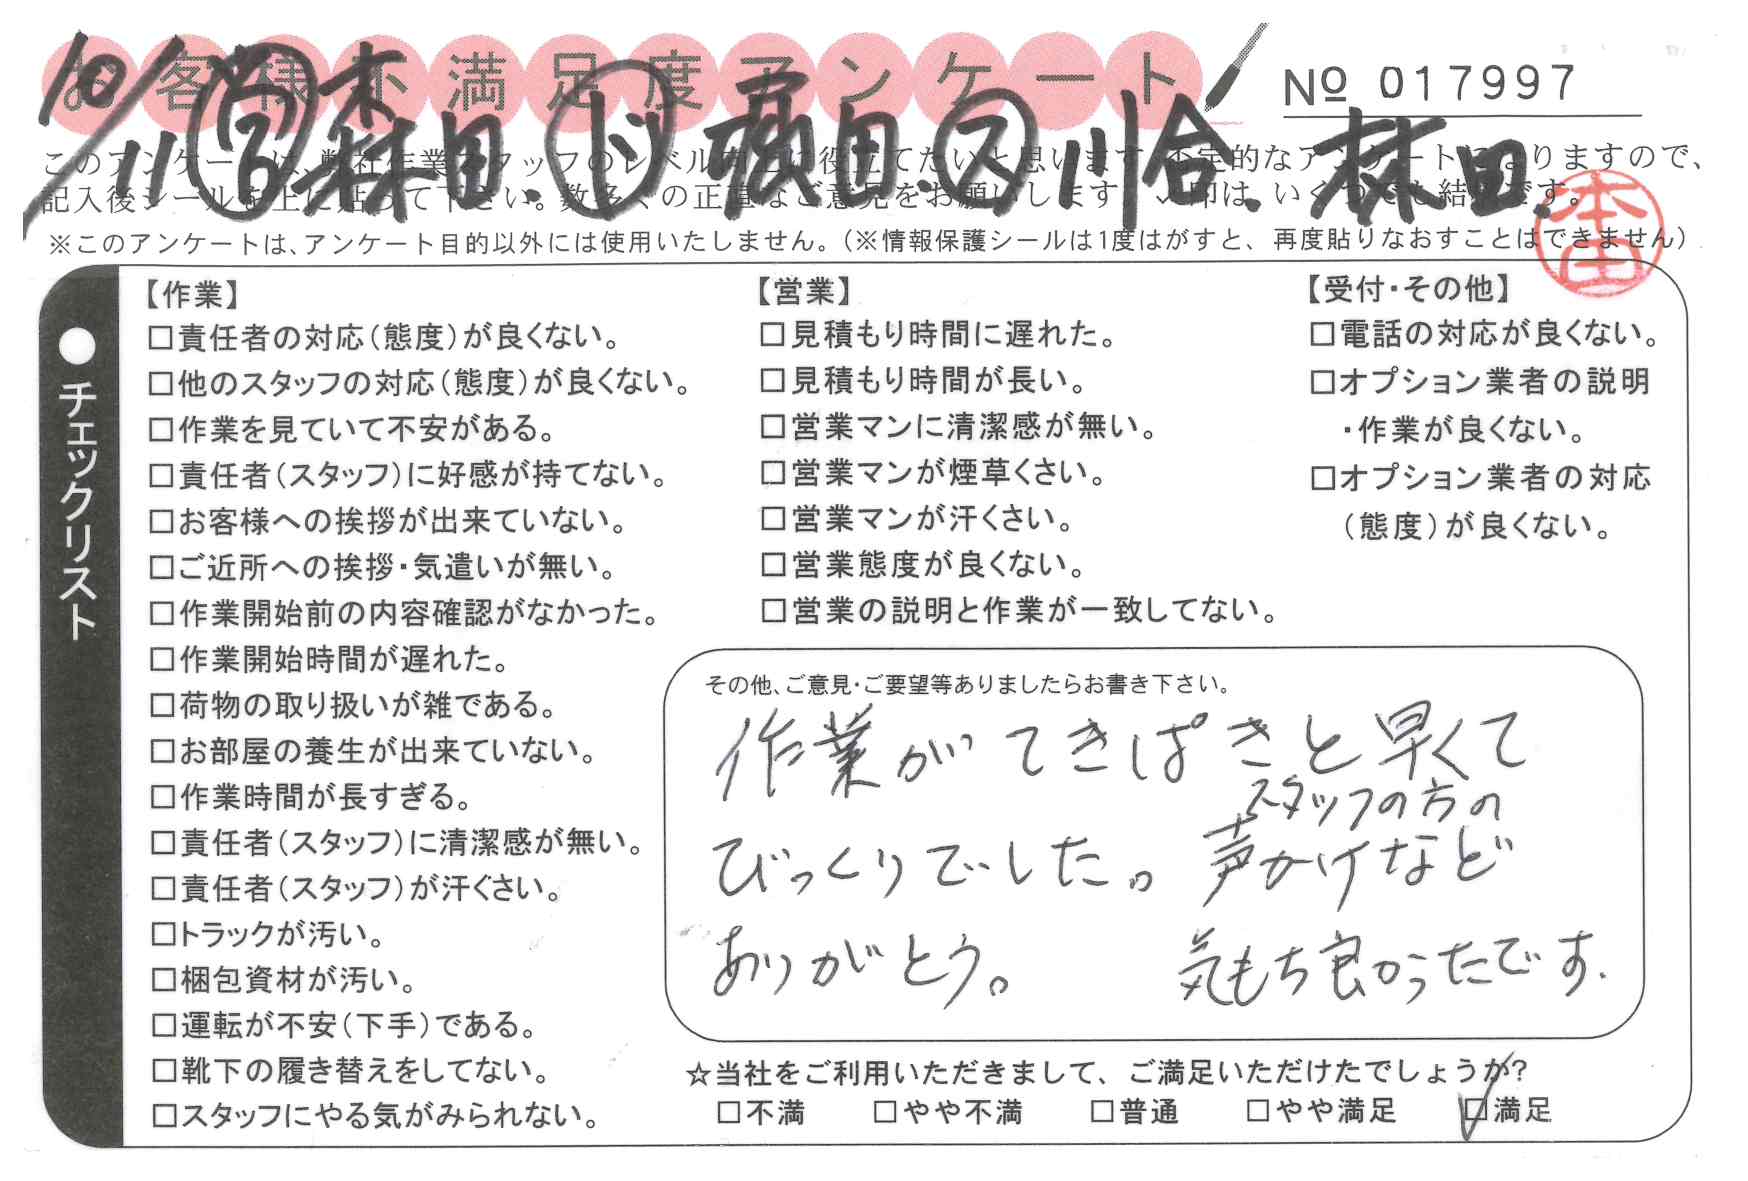 お客様不満足度アンケート
№ 017997
10/11 営 森田. ド 横田. ス 川合. 林田.
このアンケートは、弊社作業スタッフのレベル向上に役立てたいと思います。不定的なアンケートになりますので、
記入後シールを上に貼って下さい。数多くの正直なご意見をお願いします。✓印は、いくつでも結構です。
※このアンケートは、アンケート目的以外には使用いたしません。(※情報保護シールは1度はがすと、再度貼りなおすことはできません)
本田
●チェックリスト
【作業】
□責任者の対応(態度)が良くない。
□他のスタッフの対応(態度)が良くない。
□作業を見ていて不安がある。
□責任者(スタッフ)に好感が持てない。
□お客様への挨拶が出来ていない。
□ご近所への挨拶・気遣いが無い。
□作業開始前の内容確認がなかった。
□作業開始時間が遅れた。
□荷物の取り扱いが雑である。
□お部屋の養生が出来ていない。
□作業時間が長すぎる。
□責任者(スタッフ)に清潔感が無い。
□責任者(スタッフ)が汗ぐさい。
□トラックが汚い。
□梱包資材が汚い。
□運転が不安(下手)である。
□靴下の履き替えをしてない。
□スタッフにやる気がみられない。
【営業】
□見積もり時間に遅れた。
□見積もり時間が長い。
□営業マンに清潔感が無い。
□営業マンが煙草くさい。
□営業マンが汗くさい。
□営業態度が良くない。
□営業の説明と作業が一致してない。
【受付・その他】
□電話の対応が良くない。
□オプション業者の説明
・作業が良くない。
□オプション業者の対応
(態度)が良くない。
その他、ご意見・ご要望等ありましたらお書き下さい。
作業がてきぱきと早くて
びっくりでした。
ありがとう。
スタッフの方の
声かけなど
気もち良かったです.
☆当社をご利用いただきまして、ご満足いただけたでしょうか?
□不満 □やや不満 □普通 □やや満足 ☑満足